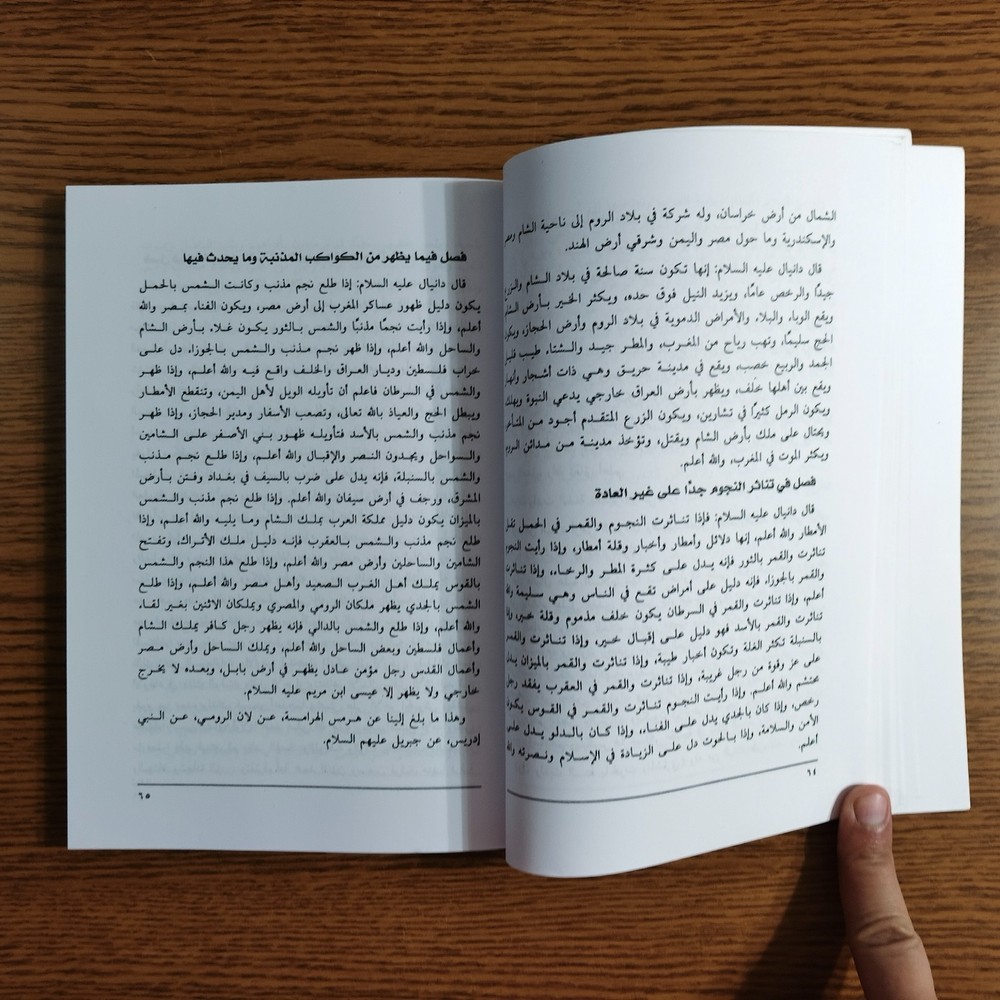 الشمال من أرض خراسان، وله شركة في بلاد الروم إلى ناحية الشام ومصر
والإسكندرية وما حول مصر واليمن وشرقي أرض الهند.
قال دانيال عليه السلام: إنها تكون سنة صالحة في بلاد الشام والزرع
جيدًا والرخص عامًا، ويزيد النيل فوق حده، ويكثر الخير بأرض الشام
ويقع الوباء والبلاء والأمراض الدموية في بلاد الروم وأرض الحجاز، ويكون
الحج سليمًا، وتهب رياح من المغرب، والمطر جيد والشتاء طيب قليل
الجمد والربيع خصب، ويقع في مدينة حريق وهي ذات أشجار وأنهار
ويقع بين أهلها خلف، ويظهر بأرض العراق خارجي يدعي النبوة ويهلك
ويكون الرمل كثيرًا في تشارين، ويكون الزرع المتقدم أجود من المتأخر
ويحتال على ملك بأرض الشام ويقتل، وتؤخذ مدينة من مدائن الروم
ويكثر الموت في المغرب، والله أعلم.
فصل في تناثر النجوم جدًا على غير العادة
قال دانيال عليه السلام: فإذا تناثرت النجوم والقمر في الحمل تقل
الأمطار والله أعلم، إنها دلائل وأمطار وأخبار وقلة أمطار، وإذا رأيت النجوم
تناثرت والقمر بالثور فإنه يدل على كثرة المطر والرخاء، وإذا تناثرت
والقمر بالجوزاء فإنه دليل على أمراض تقع في الناس وهي سليمة والله
أعلم، وإذا تناثرت والقمر في السرطان يكون خلف مذموم وقلة خير، وإذا
تناثرت والقمر بالأسد فهو دليل على إقبال خير، وإذا تناثرت والقمر
بالسنبلة تكثر الغلة وتكون أخبار طيبة، وإذا تناثرت والقمر بالميزان يدل
على عز وقوة من رجل غريبة، وإذا تناثرت والقمر في العقرب يفقد رجل
محتشم والله أعلم، وإذا رأيت النجوم تناثرت والقمر في القوس يكون
رخص، وإذا كان بالجدي يدل على الفناء، وإذا كان بالدلو يدل على
الأمن والسلامة، وإذا بالحوت دل على الزيادة في الإسلام ونصرته والله
أعلم.
٦٤
فصل فيما يظهر من الكواكب المذنبة وما يحدث فيها
قال دانيال عليه السلام: إذا طلع نجم مذنب وكانت الشمس بالحمل
يكون دليل ظهور عساكر المغرب إلى أرض مصر، ويكون الفناء بمصر والله
أعلم، وإذا رأيت نجمًا مذنبًا والشمس بالثور يكون غلاء بأرض الشام
والساحل والله أعلم، وإذا ظهر نجم مذنب والشمس بالجوزاء دل على
خراب فلسطين وديار العراق والخلف واقع فيه والله أعلم، وإذا ظهر
والشمس في السرطان فاعلم أن تأويله الويل لأهل اليمن، وتنقطع الأمطار
ويبطل الحج والعياذ بالله تعالى، وتصعب الأسفار ومدير الحجاز، وإذا ظهر
نجم مذنب والشمس بالأسد فتأويله ظهور بني الأصفر على الشامين
والسواحل ويجدون النصر والإقبال والله أعلم، وإذا طلع نجم مذنب
والشمس بالسنبلة، فإنه يدل على ضرب بالسيف في بغداد وفتن بأرض
المشرق، ورجف في أرض سيفان والله أعلم. وإذا طلع نجم مذنب والشمس
بالميزان يكون دليل مملكة العرب بملك الشام وما يليه والله أعلم، وإذا
طلع نجم مذنب والشمس بالعقرب فإنه دليل ملك الأتراك، وتفتح
الشامين والساحلين وأرض مصر والله أعلم، وإذا طلع هذا النجم والشمس
بالقوس يملك أهل الغرب الصعيد وأهل مصر والله أعلم، وإذا طلع
الشمس بالجدي يظهر ملكان الرومي والمصري ويملكان الاثنين بغير لقاء
والله أعلم، وإذا طلع والشمس بالدالي فإنه يظهر رجل كافر يملك الشام
وأعمال فلسطين وبعض الساحل والله أعلم، ويملك الساحل وأرض مصر
وأعمال القدس رجل مؤمن عادل يظهر في أرض بابل، وبعده لا يخرج
خارجي ولا يظهر إلا عيسى ابن مريم عليه السلام.
وهذا ما بلغ إلينا عن هرمس الهرامسة، عن لان الرومي، عن النبي
إدريس، عن جبريل عليهم السلام.
٦٥